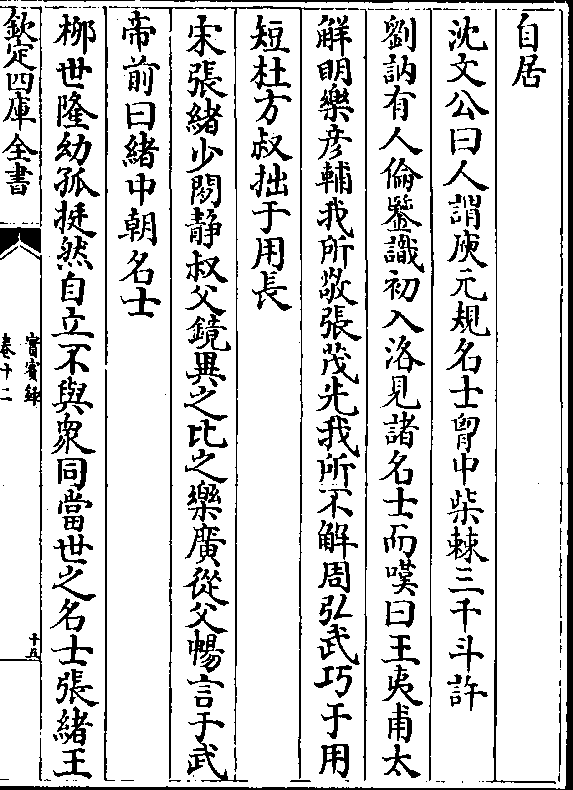 自居
沈文公曰人謂庾元規名士胷中柴棘三千斗許
劉訥有人倫鑒識初入洛見諸名士而嘆曰王夷甫太
鮮明樂彦輔我所敬張茂先我所不解周弘武巧于用
短杜方叔拙于用長
宋張緒少閒静叔父鏡異之比之樂廣從父暢言于武
帝前曰緒中朝名士
桞世隆幼孤挺然自立不與衆同當世之名士張緒王
欽定四庫全書
實賓録
卷十二
十五